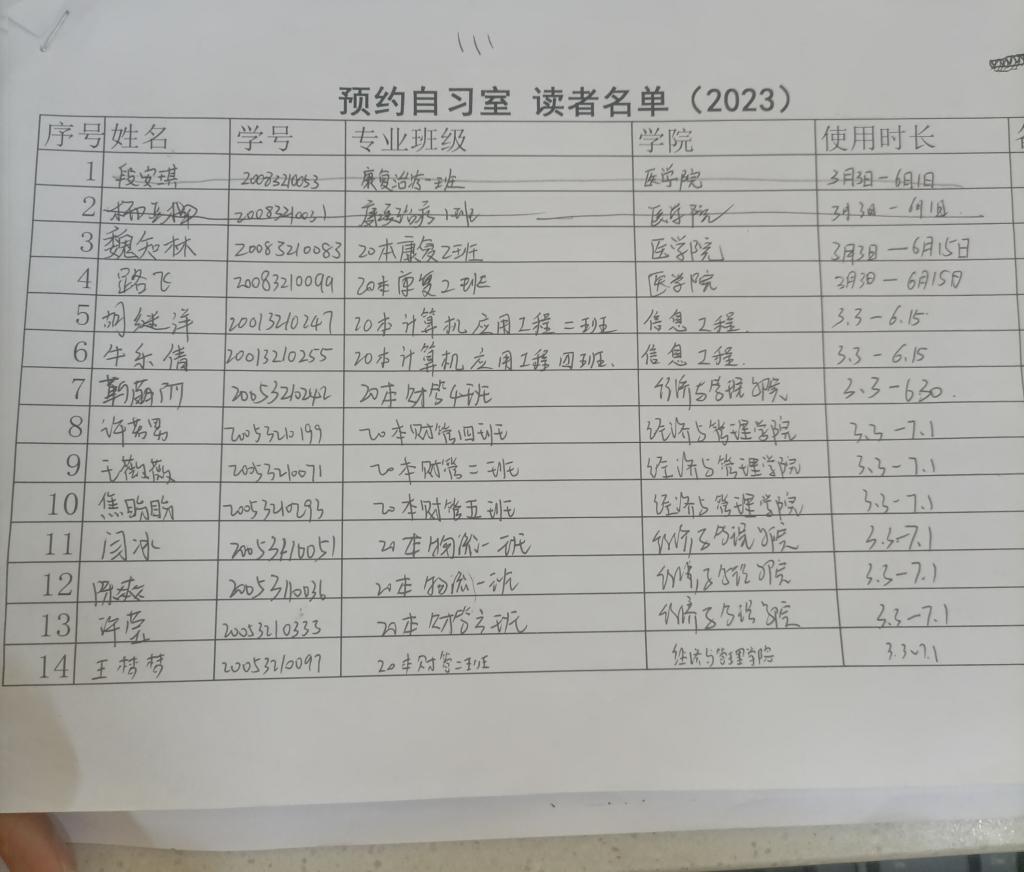 预约自习室 读者名单（2023）
序号 姓名 学号 专业班级 学院 使用时长
1 段安琪 20083210053 康复治疗一班 医学院 3月3日－6月1日
2 20083210031 康复治疗1班 医学院 3月3日－6月1日
3 魏知林 20083210083 20本康复2班 医学院 3月3日－6月15日
4 路飞 20083210099 20本康复2班 医学院 3月3日－6月15日
5 胡继洋 20013210247 20本计算机应用工程二班 信息工程. 3.3－6.15
6 牛乐倩 20013210255 20本计算机应用工程四班. 信息工程. 3.3－6.15
7 靳萌丽 20053210242 20本财管4班 经济与管理学院 3.3－630.
8 许苗男 20053210199 20本财管四班 经济与管理学院 3.3－7.1
9 王薇薇 20053210071 20本财管二班 经济与管理学院 3.3－7.1
10 焦盼盼 20053210293 20本财管五班 经济与管理学院 3.3－7.1
11 闫冰 20053210051 20本物流一班 经济与管理学院 3.3－7.1
12 陈爽 20053210036 20本物流一班 经济与管理学院 3.3－7.1
13 许莹 20053210333 20本财管三班 经济与管理学院 3.3－7.1
14 王梦梦 20053210097 20本财管二班 经济与管理学院 3.3~7.1